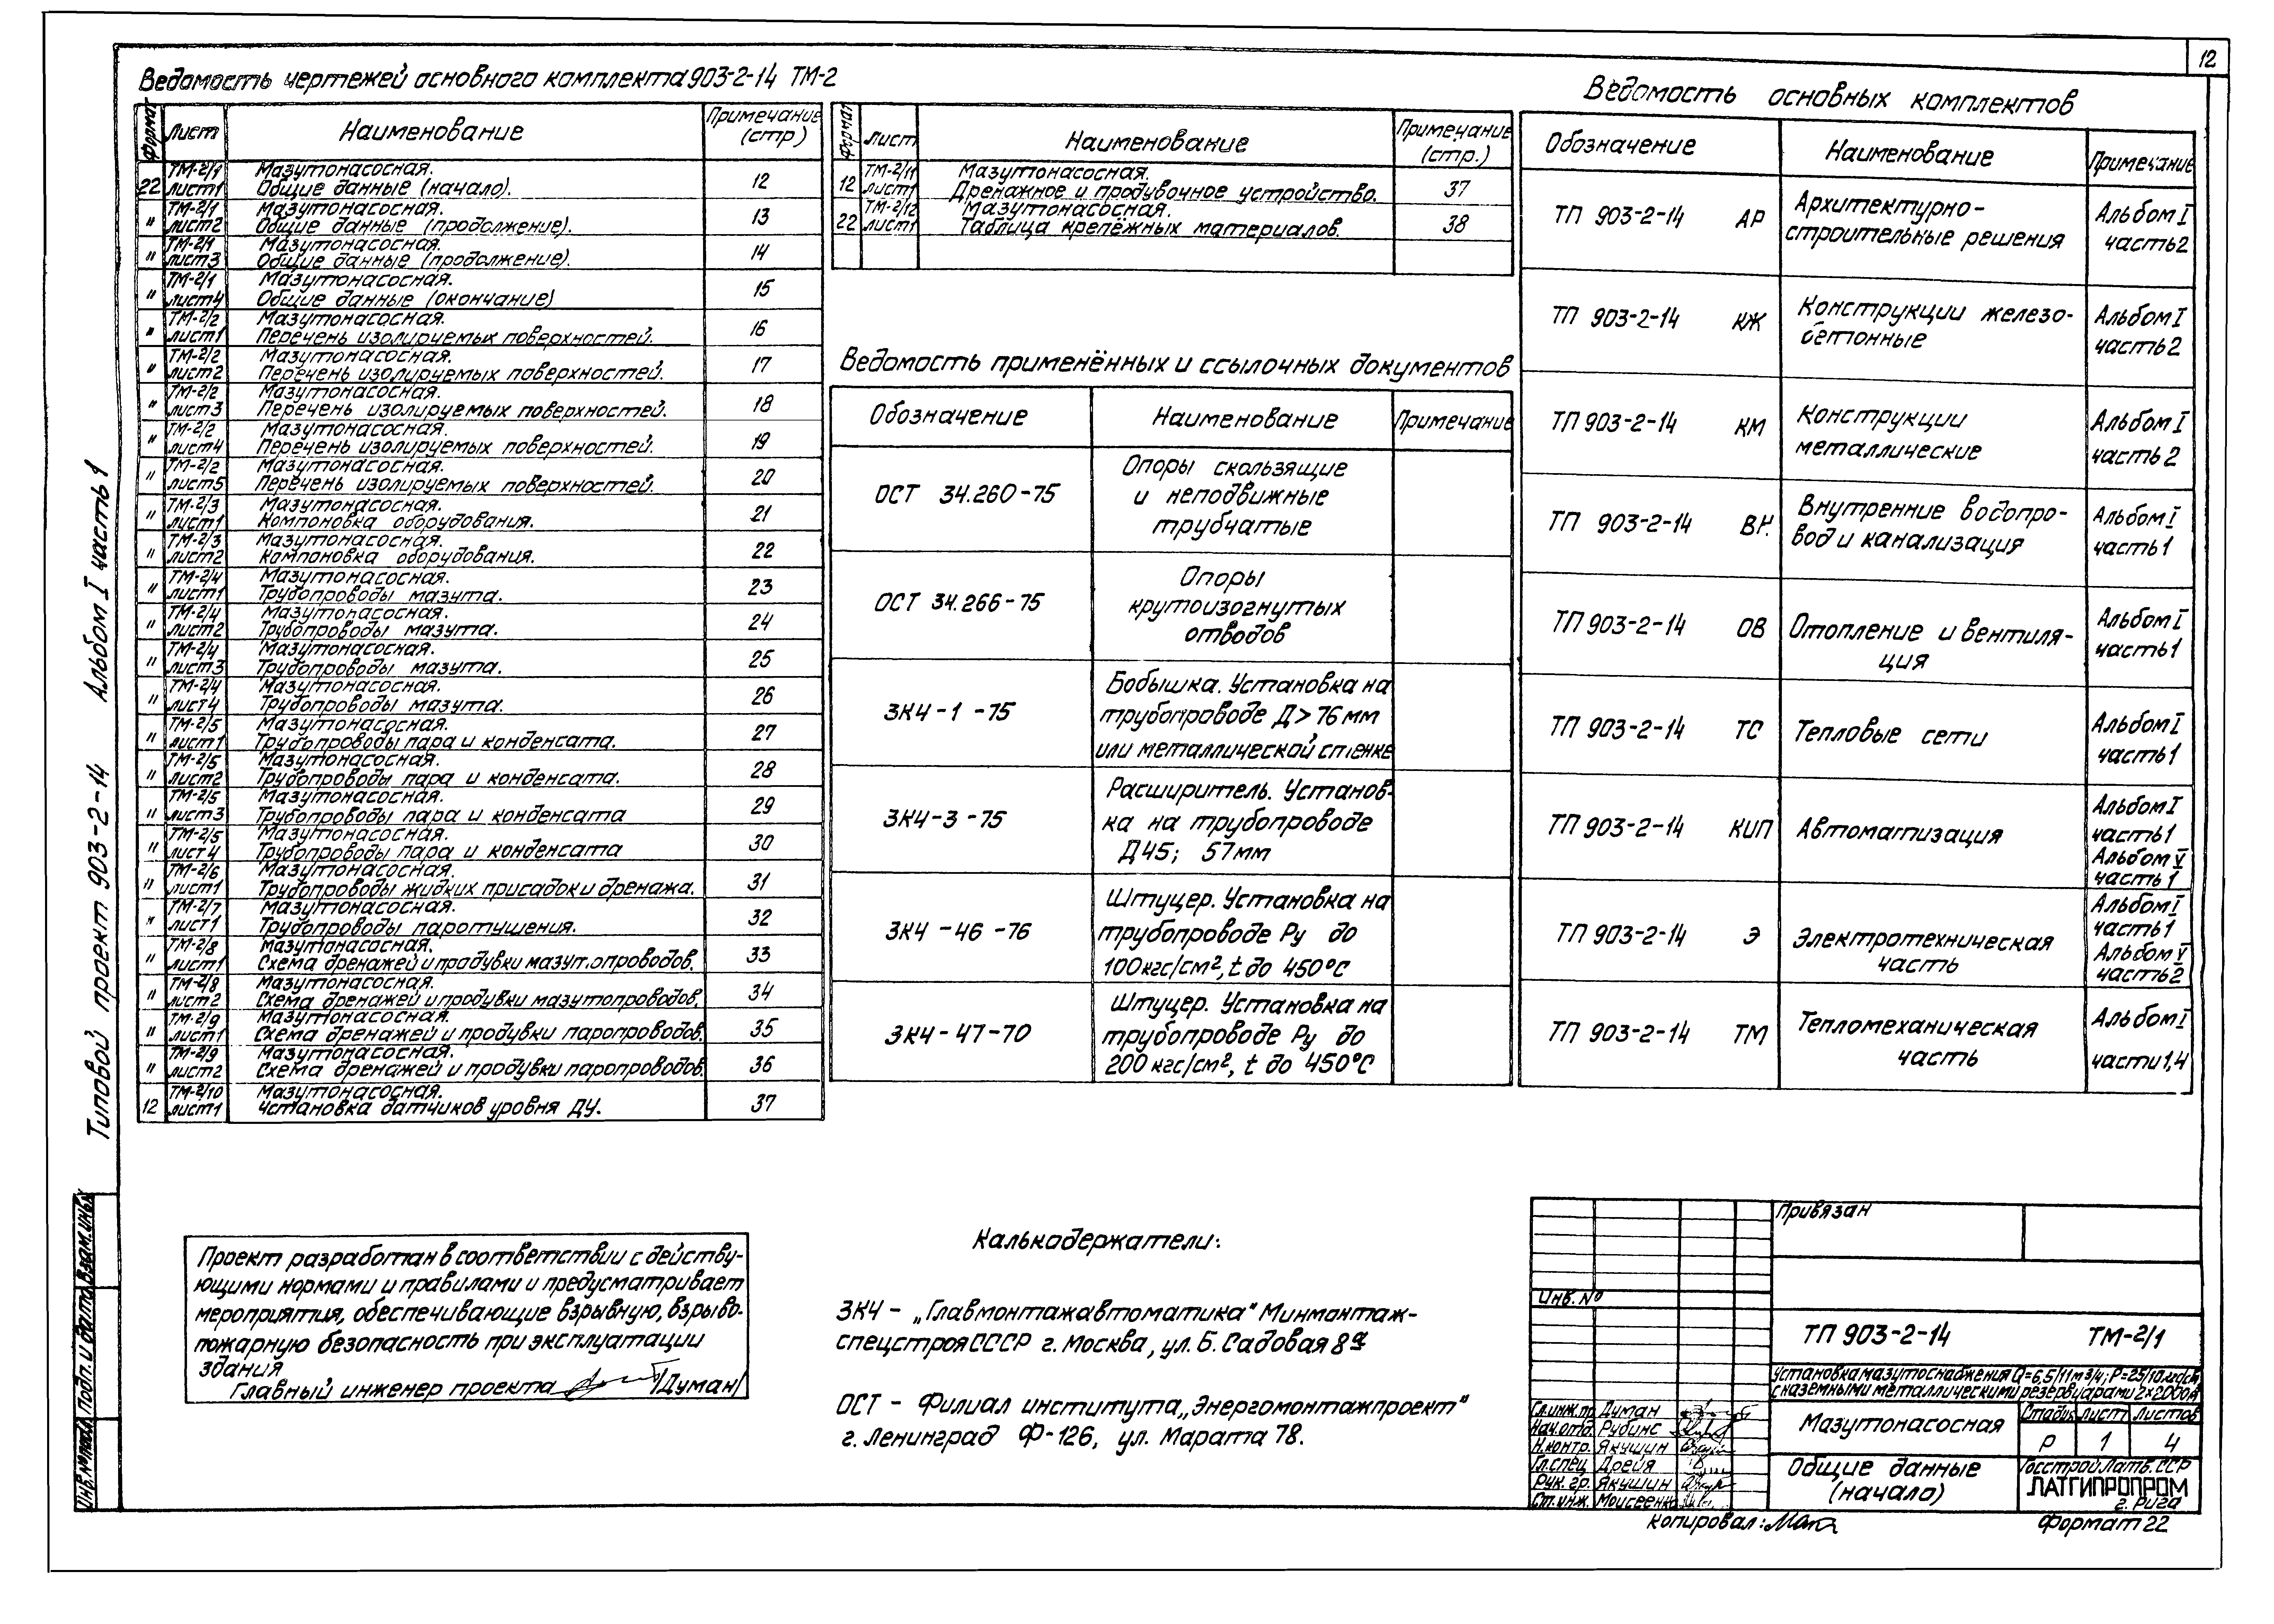 12
Ведомость чертежей основного комплекта 903-2-14 ТМ-2
Формат Лист Наименование Примечание (стр)
22 ТМ-2/1 лист1 Мазутонасосная. Общие данные (начало). 12
" ТМ-2/1 лист2 Мазутонасосная. Общие данные (продолжение). 13
" ТМ-2/1 лист3 Мазутонасосная. Общие данные (продолжение). 14
" ТМ-2/1 лист4 Мазутонасосная. Общие данные (окончание) 15
" ТМ-2/2 лист1 Мазутонасосная. Перечень изолируемых поверхностей. 16
" ТМ-2/2 лист2 Мазутонасосная. Перечень изолируемых поверхностей. 17
" ТМ-2/2 лист3 Мазутонасосная. Перечень изолируемых поверхностей. 18
" ТМ-2/2 лист4 Мазутонасосная. Перечень изолируемых поверхностей. 19
" ТМ-2/2 лист5 Мазутонасосная. Перечень изолируемых поверхностей. 20
" ТМ-2/3 лист1 Мазутонасосная. Компоновка оборудования. 21
" ТМ-2/3 лист2 Мазутонасосная. Компоновка оборудования. 22
" ТМ-2/4 лист1 Мазутонасосная. Трубопроводы мазута. 23
" ТМ-2/4 лист2 Мазутонасосная. Трубопроводы мазута. 24
" ТМ-2/4 лист3 Мазутонасосная. Трубопроводы мазута. 25
" ТМ-2/4 лист4 Мазутонасосная. Трубопроводы мазута. 26
" ТМ-2/5 лист1 Мазутонасосная. Трубопроводы пара и конденсата. 27
" ТМ-2/5 лист2 Мазутонасосная. Трубопроводы пара и конденсата. 28
" ТМ-2/5 лист3 Мазутонасосная. Трубопроводы пара и конденсата 29
" ТМ-2/5 лист4 Мазутонасосная. Трубопроводы пара и конденсата 30
" ТМ-2/6 лист1 Мазутонасосная. Трубопроводы жидких присадок и дренажа. 31
" ТМ-2/7 лист1 Мазутонасосная. Трубопроводы паротушения. 32
" ТМ-2/8 лист1 Мазутонасосная. Схема дренажей и продувки мазутопроводов. 33
" ТМ-2/8 лист2 Мазутонасосная. Схема дренажей и продувки мазутопроводов. 34
" ТМ-2/9 лист1 Мазутонасосная. Схема дренажей и продувки паропроводов. 35
" ТМ-2/9 лист2 Мазутонасосная. Схема дренажей и продувки паропроводов. 36
12 ТМ-2/10 лист1 Мазутонасосная. Установка датчиков уровня ДУ. 37
Формат Лист Наименование Примечание (стр.)
12 ТМ-2/11 лист1 Мазутонасосная. Дренажное и продувочное устройство. 37
22 ТМ-2/12 лист1 Мазутонасосная. Таблица крепёжных материалов. 38
Ведомость применённых и ссылочных документов
Обозначение Наименование Примечание
ОСТ 34.260-75 Опоры скользящие
и неподвижные
трубчатые
ОСТ 34.266-75 Опоры
крутоизогнутых
отводов
ЗК4-1-75 Бобышка. Установка на
трубопроводе Д>76мм
или металлической стенке
ЗК4-3-75 Расширитель. Установ-
ка на трубопроводе
Д45; 57мм
ЗК4-46-76 Штуцер. Установка на
трубопроводе Ру до
100кгс/см², t до 450°С
ЗК4-47-70 Штуцер. Установка на
трубопроводе Ру до
200 кгс/см², t до 450°С
Ведомость основных комплектов
Обозначение Наименование Примечание
ТП 903-2-14 АР Архитектурно-
строительные решения Альбом I
часть 2
ТП 903-2-14 КЖ Конструкции железо-
бетонные Альбом I
часть 2
ТП 903-2-14 КМ Конструкции
металлические Альбом I
часть 2
ТП 903-2-14 ВК Внутренние водопро-
вод и канализация Альбом I
часть 1
ТП 903-2-14 ОВ Отопление и вентиля-
ция Альбом I
часть 1
ТП 903-2-14 ТС Тепловые сети Альбом I
часть 1
ТП 903-2-14 КИП Автоматизация Альбом I
часть 1
Альбом V
часть 1
ТП 903-2-14 Э Электротехническая
часть Альбом I
часть 1
Альбом V
часть 2
ТП 903-2-14 ТМ Тепломеханическая
часть Альбом I
части 1,4
Типовой проект 903-2-14 Альбом I часть 1
Инв.№подл. Подп. и дата Взам.инв.№
Проект разработан в соответствии с действу-
ющими нормами и правилами и предусматривает
мероприятия, обеспечивающие взрывную, взрыво-
пожарную безопасность при эксплуатации
здания
Главный инженер проекта /Думан/
Калькодержатели:
ЗК4 - „Главмонтажавтоматика" Минмонтаж-
спецстроя СССР г. Москва, ул. Б. Садовая 8а
ОСТ - Филиал института „Энергомонтажпроект"
г. Ленинград Ф-126, ул. Марата 78.
Привязан
Инв. №
ТП 903-2-14 ТМ-2/1
Установка мазутоснабжения Q=6,5/11 м3/ч; Р=25/10 кгс/см²
с наземными металлическими резервуарами 2×2000м³
Гл.инж.пр. Думан
Нач.отд. Рубинс
Н.контр. Якушин
Гл.спец. Дрейя
Рук. гр. Якушин
Ст.инж. Моисеенко
Мазутонасосная
Стадия Лист Листов
Р 1 4
Общие данные
(начало)
Госстрой Латв.ССР
ЛАТГИПРОПРОМ
г. Рига
Копировал:
Формат 22